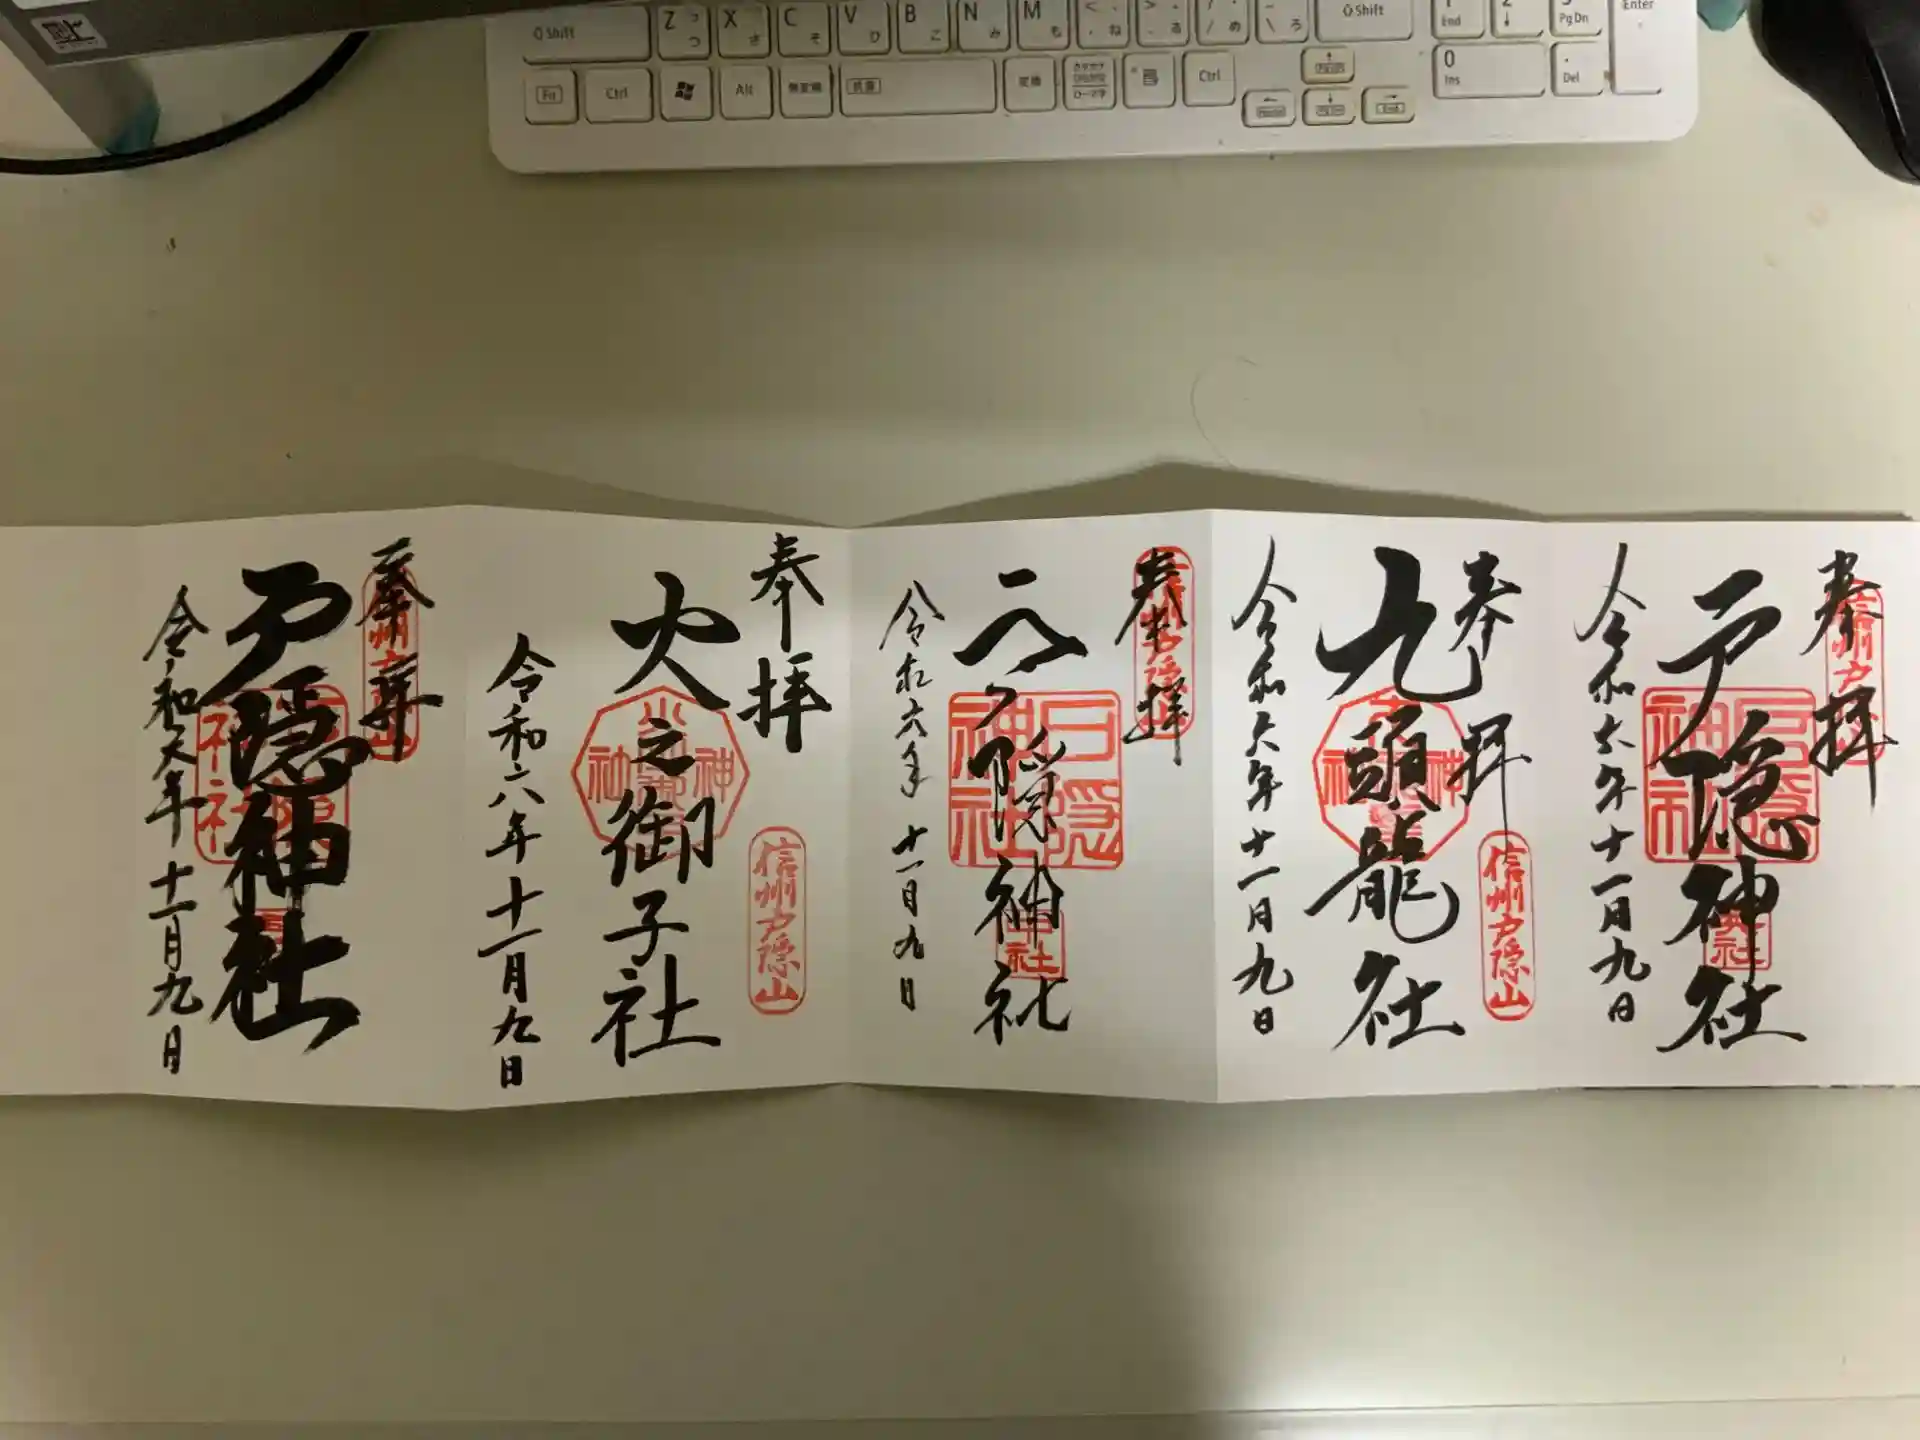 Shift
Z っ つ
X さ
C そ
V ひ
B こ
N み
M も
< 、 , ね
> 。 . る
? ・ / め
_ \ ろ
Shift
1 End
2 ↓
3 Pg Dn
Enter
Fn
Ctrl
Alt
無変換
抗菌
変換
カタカナ
ひらがな
ローマ字
Ctrl
0 Ins
. Del
End
奉拝
信州戸隠山
戸隠神社
戸隠神社
奥社
令和六年十一月九日
奉拝
九頭龍社
信州戸隠山
令和六年十一月九日
奉拝
信州戸隠山
戸隠神社
戸隠神社
中社
令和六年十一月九日
奉拝
火之御子社
信州戸隠山
令和六年十一月九日
奉拝
信州戸隠山
戸隠神社
令和六年十一月九日